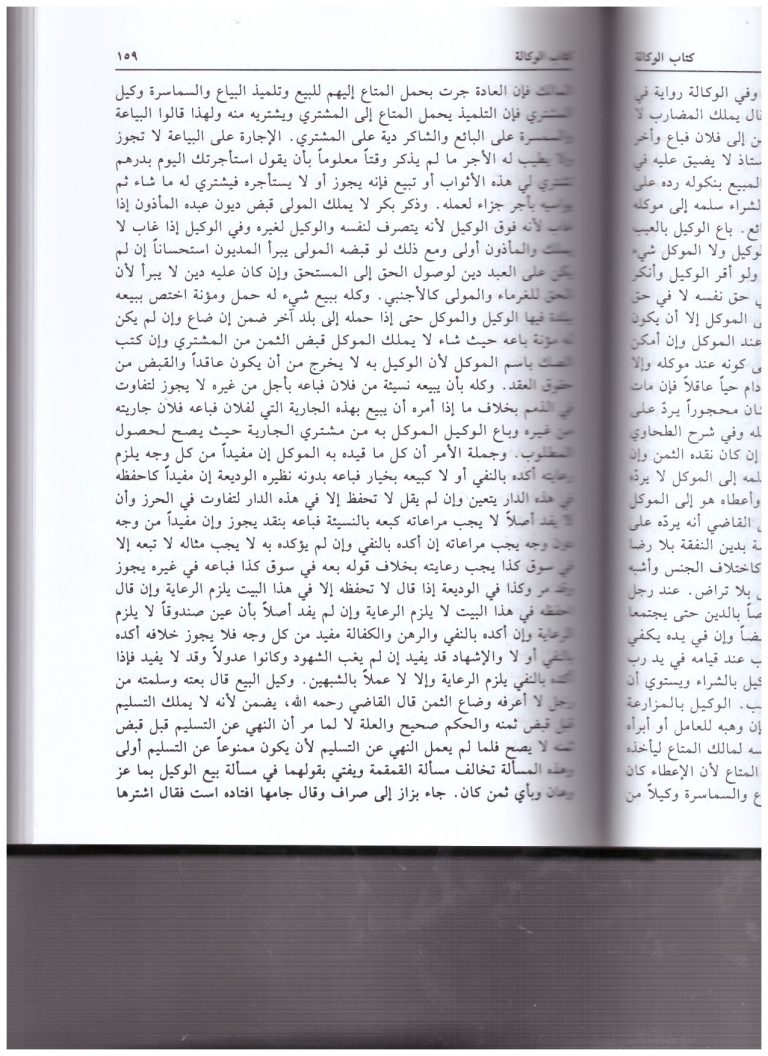 كتاب الوكالة
١٥٩
كتاب الوكالة
المالك فإن العادة جرت بحمل المتاع إليهم للبيع وتلميذ البياع والسماسرة وكيل
المشتري فإن التلميذ يحمل المتاع إلى المشتري ويشتريه منه ولهذا قالوا البياعة
والسمسرة على البائع والشاكر دية على المشتري. الإجارة على البياعة لا تجوز
ولا يطيب له الأجر ما لم يذكر وقتاً معلوماً بأن يقول استأجرتك اليوم بدرهم
تشتري لي هذه الأثواب أو تبيع فإنه يجوز أو لا يستأجره فيشتري له ما شاء ثم
يواسيه بأجر جزاء لعمله. وذكر بكر لا يملك المولى قبض ديون عبده المأذون إذا
غاب لأنه فوق الوكيل لأنه يتصرف لنفسه والوكيل لغيره وفي الوكيل إذا غاب لا
يملك والمأذون أولى ومع ذلك لو قبضه المولى يبرأ المديون استحساناً إن لم
يكن على العبد دين لوصول الحق إلى المستحق وإن كان عليه دين لا يبرأ لأن
الحق للغرماء والمولى كالأجنبي. وكله ببيع شيء له حمل ومؤنة اختص ببيعه
ببلدة فيها الوكيل والموكل حتى إذا حمله إلى بلد آخر ضمن إن ضاع وإن لم يكن
له مؤنة باعه حيث شاء لا يملك الموكل قبض الثمن من المشتري وإن كتب
الصك باسم الموكل لأن الوكيل به لا يخرج من أن يكون عاقداً والقبض من
حقوق العقد. وكله بأن يبيعه نسيئة من فلان فباعه بأجل من غيره لا يجوز لتفاوت
في الذمم بخلاف ما إذا أمره أن يبيع بهذه الجارية التي لفلان فباعه فلان جاريته
من غيره وباع الوكيل الموكل به من مشتري الجارية حيث يصح لحصول
المطلوب. وجملة الأمر أن كل ما قيده به الموكل إن مفيداً من كل وجه يلزم
رعايته أكده بالنفي أو لا كبيعه بخيار فباعه بدونه نظيره الوديعة إن مفيداً كاحفظه
في هذه الدار يتعين وإن لم يقل لا تحفظ إلا في هذه الدار لتفاوت في الحرز وأن
لا يفد أصلاً لا يجب مراعاته كبعه بالنسيئة فباعه بنقد يجوز وإن مفيداً من وجه
دون وجه يجب مراعاته إن أكده بالنفي وإن لم يؤكده به لا يجب مثاله لا تبعه إلا
في سوق كذا يجب رعايته بخلاف قوله بعه في سوق كذا فباعه في غيره يجوز
وقد مر وكذا في الوديعة إذا قال لا تحفظه إلا في هذا البيت يلزم الرعاية وإن قال
احفظه في هذا البيت لا يلزم الرعاية وإن لم يفد أصلاً بأن عين صندوقاً لا يلزم
الرعاية وإن أكده بالنفي والرهن والكفالة مفيد من كل وجه فلا يجوز خلافه أكده
بالنفي أو لا والإشهاد قد يفيد إن لم يغب الشهود وكانوا عدولاً وقد لا يفيد فإذا
أكده بالنفي يلزم الرعاية وإلا لا عملاً بالشبهين. وكيل البيع قال بعته وسلمته من
رجل لا أعرفه وضاع الثمن قال القاضي رحمه الله، يضمن لأنه لا يملك التسليم
قبل قبض ثمنه والحكم صحيح والعلة لا لما مر أن النهي عن التسليم قبل قبض
ثمنه لا يصح فلما لم يعمل النهي عن التسليم لأن يكون ممنوعاً عن التسليم أولى
وهذه المسألة تخالف مسألة القمقمة ويفتي بقولهما في مسألة بيع الوكيل بما عز
وهان وبأي ثمن كان. جاء بزاز إلى صراف وقال جامها افتاده است فقال اشترها
وفي الوكالة رواية في
قال يملك المضارب لا
من إلى فلان فباع وأخر
ستاذ لا يضيق عليه في
المبيع بنكوله رده على
لشراء سلمه إلى موكله
ائع. باع الوكيل بالعيب
لوكيل ولا الموكل شيء
ولو أقر الوكيل وأنكر
ي حق نفسه لا في حق
ى الموكل إلا أن يكون
عند الموكل وإن أمكن
ى كونه عند موكله وإلا
دام حياً عاقلاً فإن مات
كان محجوراً يردّ على
له وفي شرح الطحاوي
إن كان نقده الثمن وإن
لمه إلى الموكل لا يردّه
وأعطاه هو إلى الموكل
القاضي أنه يردّه على
ة بدين النفقة بلا رضا
كاختلاف الجنس وأشبه
ن بلا تراض. عند رجل
صاً بالدين حتى يجتمعا
ضاً وإن في يده يكفي
ب عند قيامه في يد رب
كيل بالشراء ويستوي أن
ب. الوكيل بالمزارعة
إن وهبه للعامل أو أبرأه
سه لمالك المتاع ليأخذه
المتاع لأن الإعطاء كان
ع والسماسرة وكيلاً من